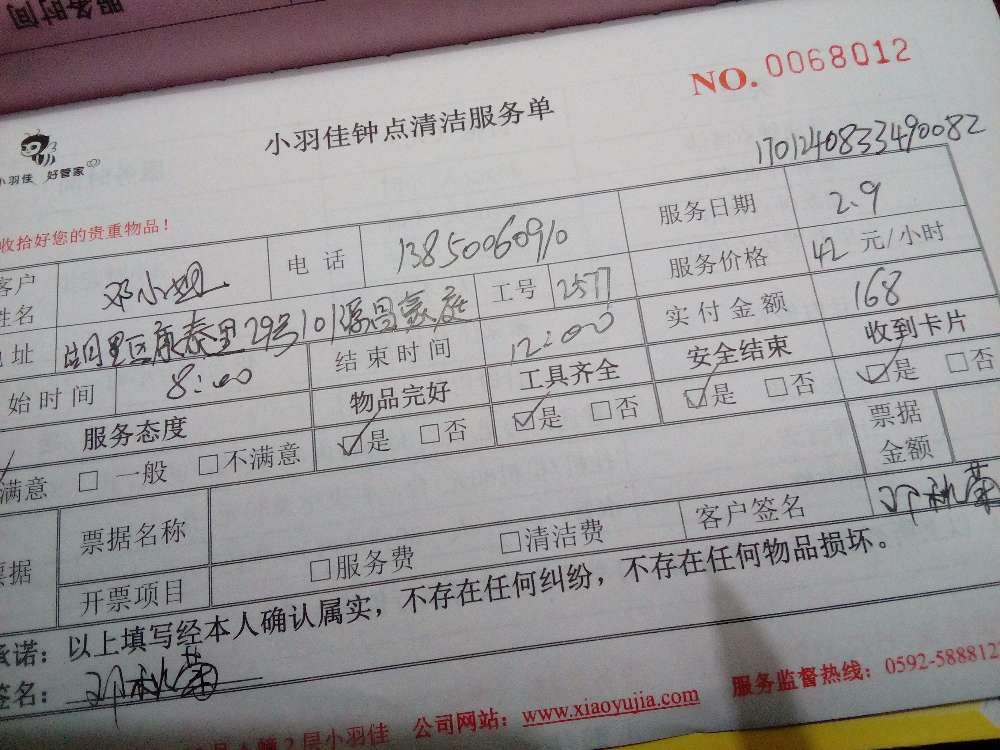 服务时间
NO.0068012
小羽佳钟点清洁服务单
小羽佳 好管家
170124083490082
收拾好您的贵重物品！
客户姓名 邓小姐 电话 13850060910 服务日期 2.9
地址 湖里区康泰里29号101源昌豪庭 工号 2577 服务价格 42 元/小时
始时间 8:00 结束时间 12:00 实付金额 168
服务态度 物品完好 工具齐全 安全结束 收到卡片
满意 □ 一般 □不满意 ☑是 □否 ☑是 □否 ☑是 □否 ☑是 □否
票据 票据名称 票据金额
开票项目 □服务费 □清洁费 客户签名
承诺：以上填写经本人确认属实，不存在任何纠纷，不存在任何物品损坏。
签名：
2层小羽佳 公司网站：www.xiaoyujia.com 服务监督热线：0592-588812